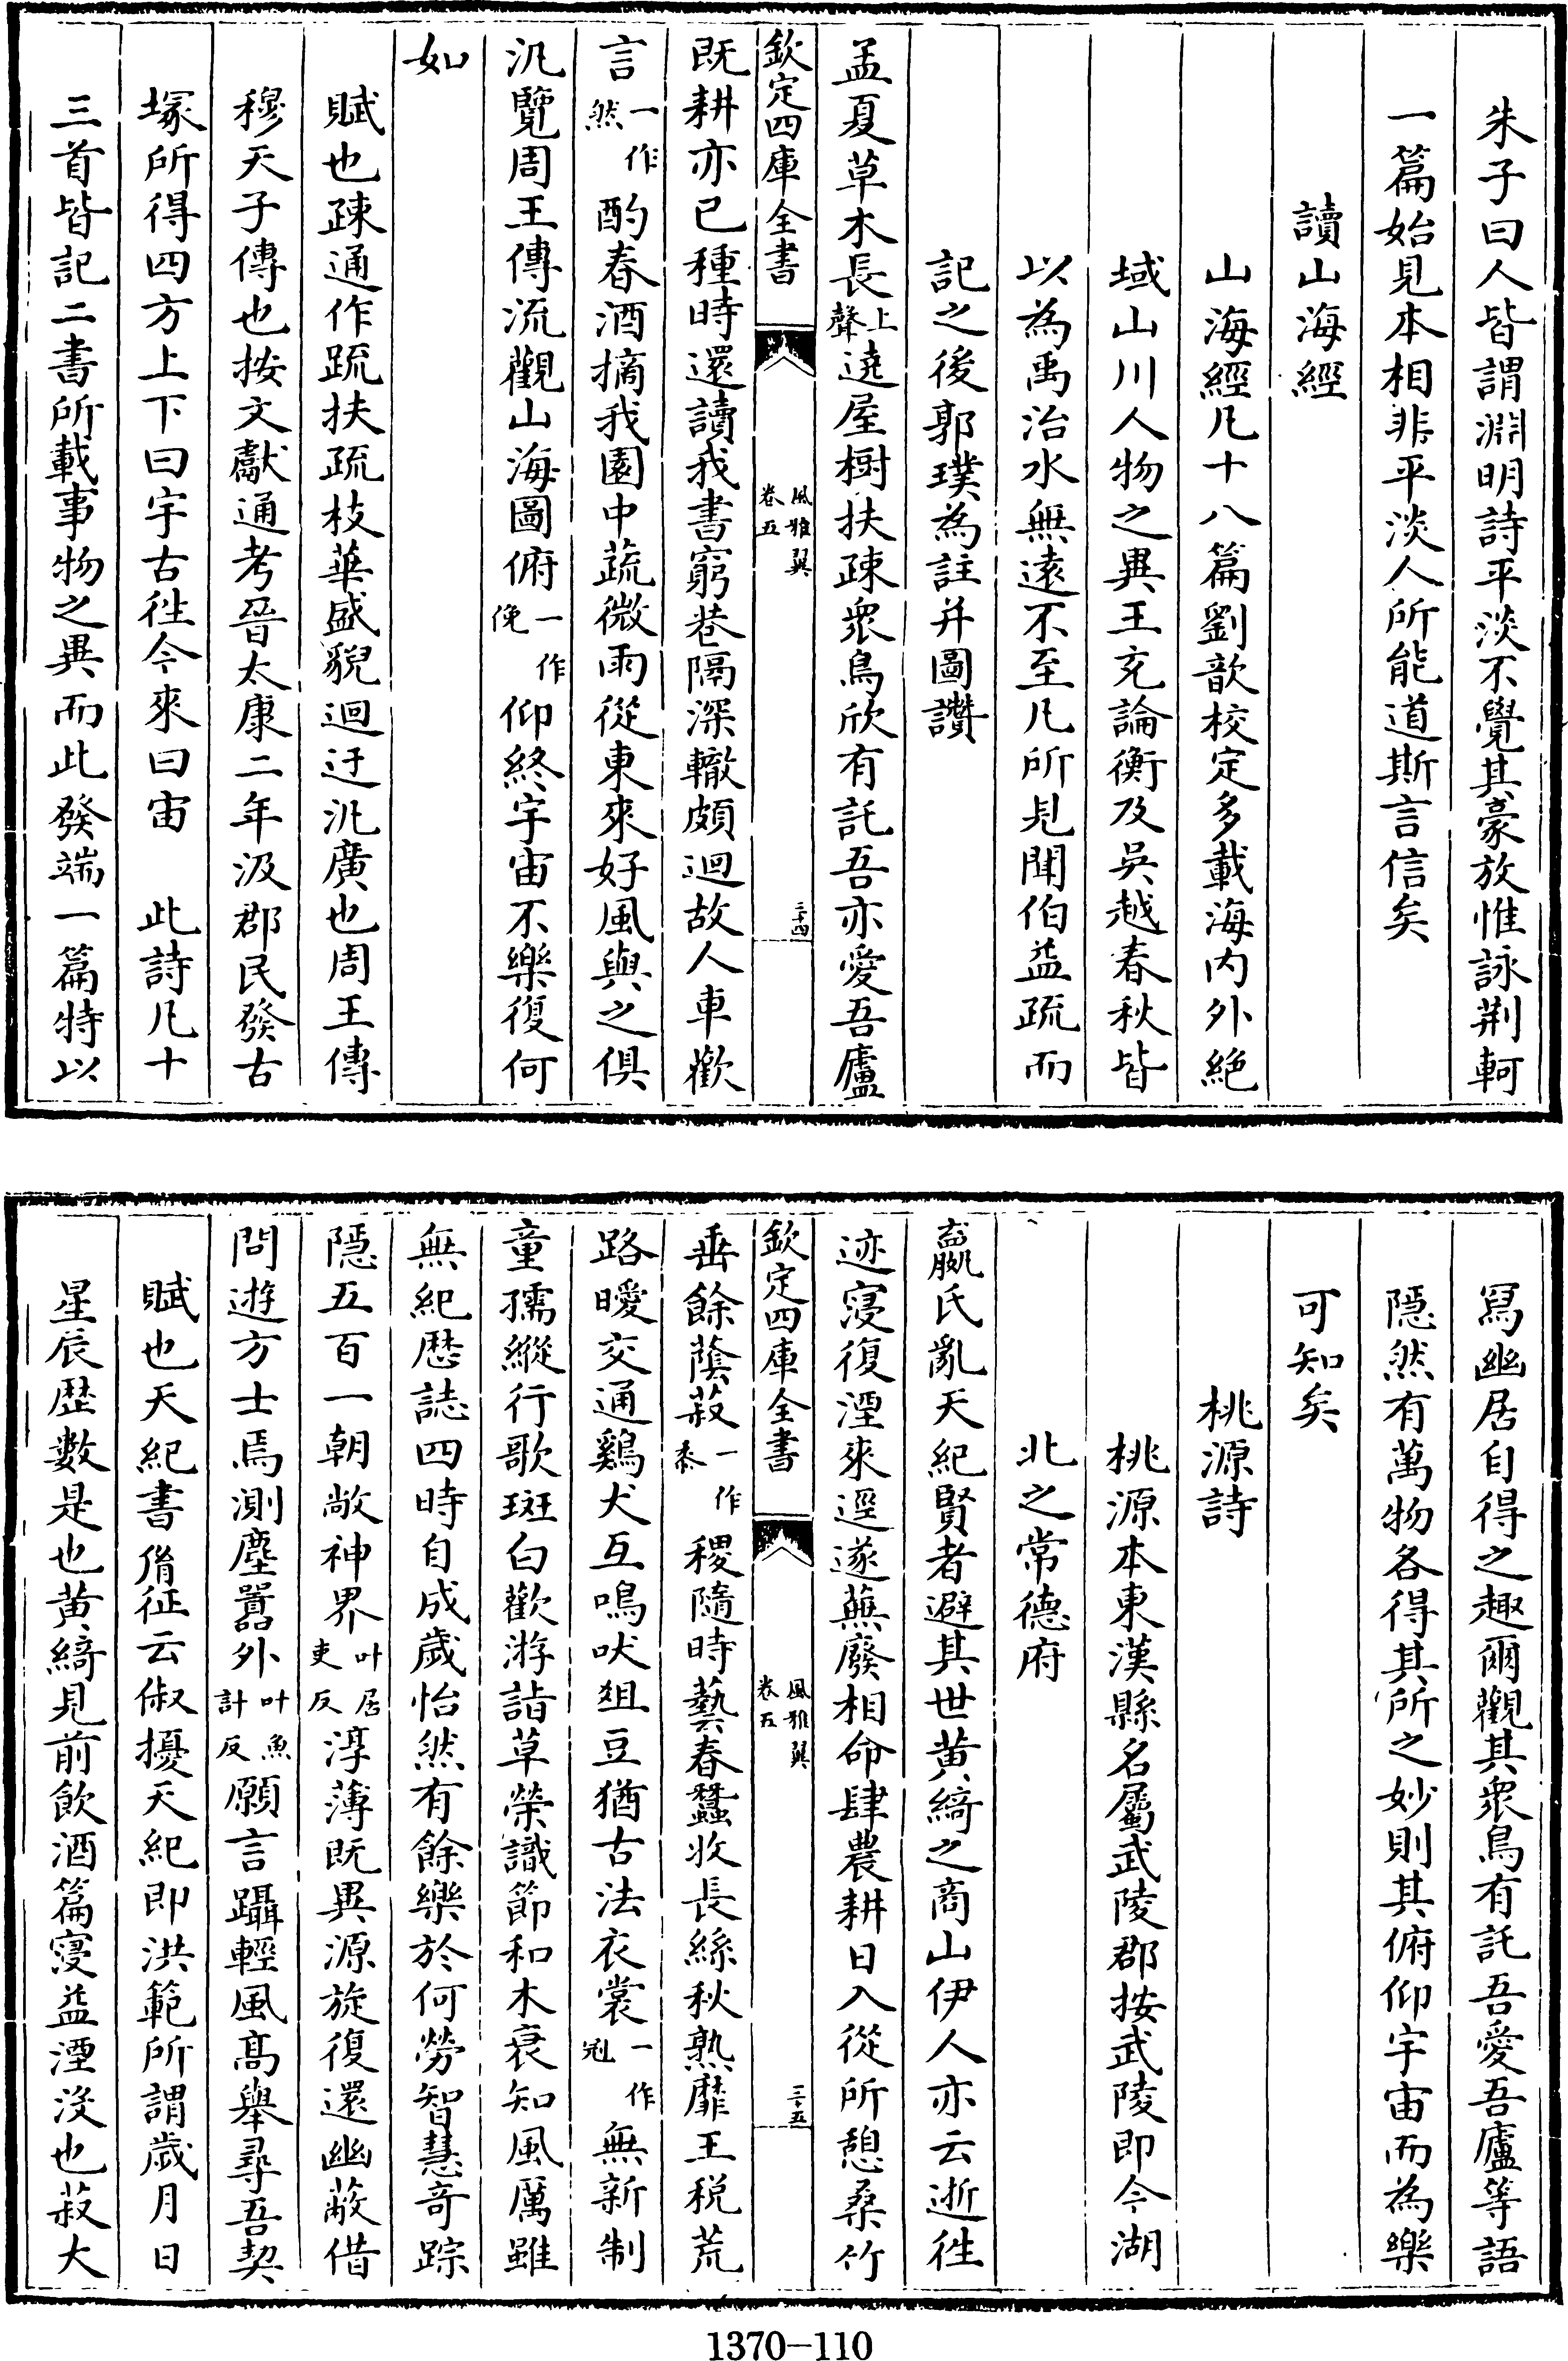 朱子曰人皆謂淵明詩平淡不覺其豪放惟詠荆軻
一篇始見本相非平淡人所能道斯言信矣
讀山海經
山海經凡十八篇劉歆校定多載海内外絶
域山川人物之異王充論衡及吳越春秋皆
以為禹治水無逺不至凡所見聞伯益疏而
記之後郭璞為註并圖讚
孟夏草木長上聲遶屋樹扶疎衆鳥欣有託吾亦愛吾廬
欽定四庫全書 風雅翼 卷五 三十四
既耕亦已種時還讀我書窮巷隔深轍頗迴故人車歡
言一作然酌春酒摘我園中蔬微雨從東來好風與之俱
汎覽周王傳流觀山海圖俯一作俛仰終宇宙不樂復何
如
賦也疎通作疏扶疏枝葉盛貎迴迂汎廣也周王傳
穆天子傳也按文獻通考晉太康二年汲郡民發古
塚所得四方上下曰宇古徃今來曰宙 此詩凡十
三首皆記二書所載事物之異而此發端一篇特以
冩幽居自得之趣爾觀其衆鳥有託吾愛吾廬等語
隠然有萬物各得其所之妙則其俯仰宇宙而為樂
可知矣
桃源詩
桃源本東漢縣名屬武陵郡按武陵即今湖
北之常德府
嬴氏亂天紀賢者避其世黄綺之商山伊人亦云逝徃
迹寖復湮來逕遂蕪廢相命肆農耕日入從所憩桑竹
欽定四庫全書 風雅翼 卷五 三十五
垂餘蔭菽一作黍稷隨時藝春蠶收長絲秋熟靡王税荒
路曖交通鷄犬互鳴吠俎豆猶古法衣裳一作冠無新制
童孺縱行歌斑白歡游詣草榮識節和木衰知風厲雖
無紀歴誌四時自成歲怡然有餘樂於何勞智慧奇踪
隠五百一朝敞神界叶居吏反淳薄既異源旋復還幽蔽借
問遊方士焉測塵囂外叶魚計反願言躡輕風髙舉尋吾契
賦也天紀書胤征云俶擾天紀即洪範所謂歲月日
星辰歴數是也黄綺見前飲酒篇寖益湮沒也菽大
1370-110